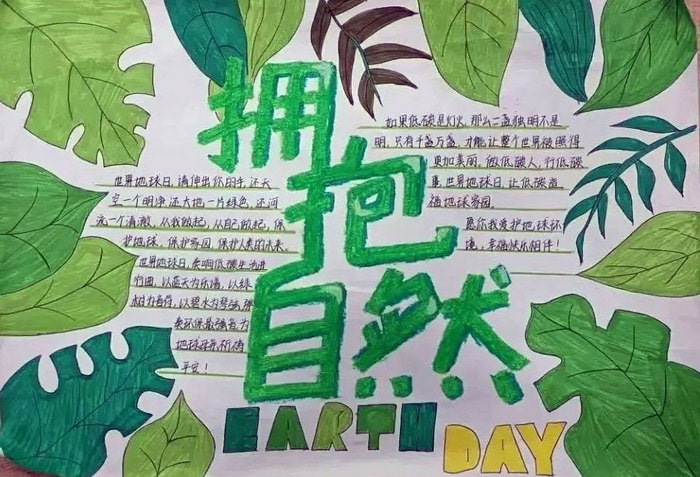 拥抱自然
世界地球日,请伸出你的手,还天
空一个明净,还大地一片绿色,还河
流一个清澈,从我做起,从自己做起,保
护地球,保护家园,保护人类的未来。
世界地球日,奏响低碳生力进
行曲,以蓝天为乐谱,以绿
树为音符,以碧水为琴弦,弹
奏环保最强音,为
地球母亲祈祷
平安!
如果低碳是灯火,那么一盏独明不是
明,只有千盏万盏,才能让整个世界被照得
更加美丽,做低碳人,行低碳
事,世界地球日,让低碳造
福地球家园
愿你我爱护地球环
境,幸福快乐相伴!
EARTH DAY